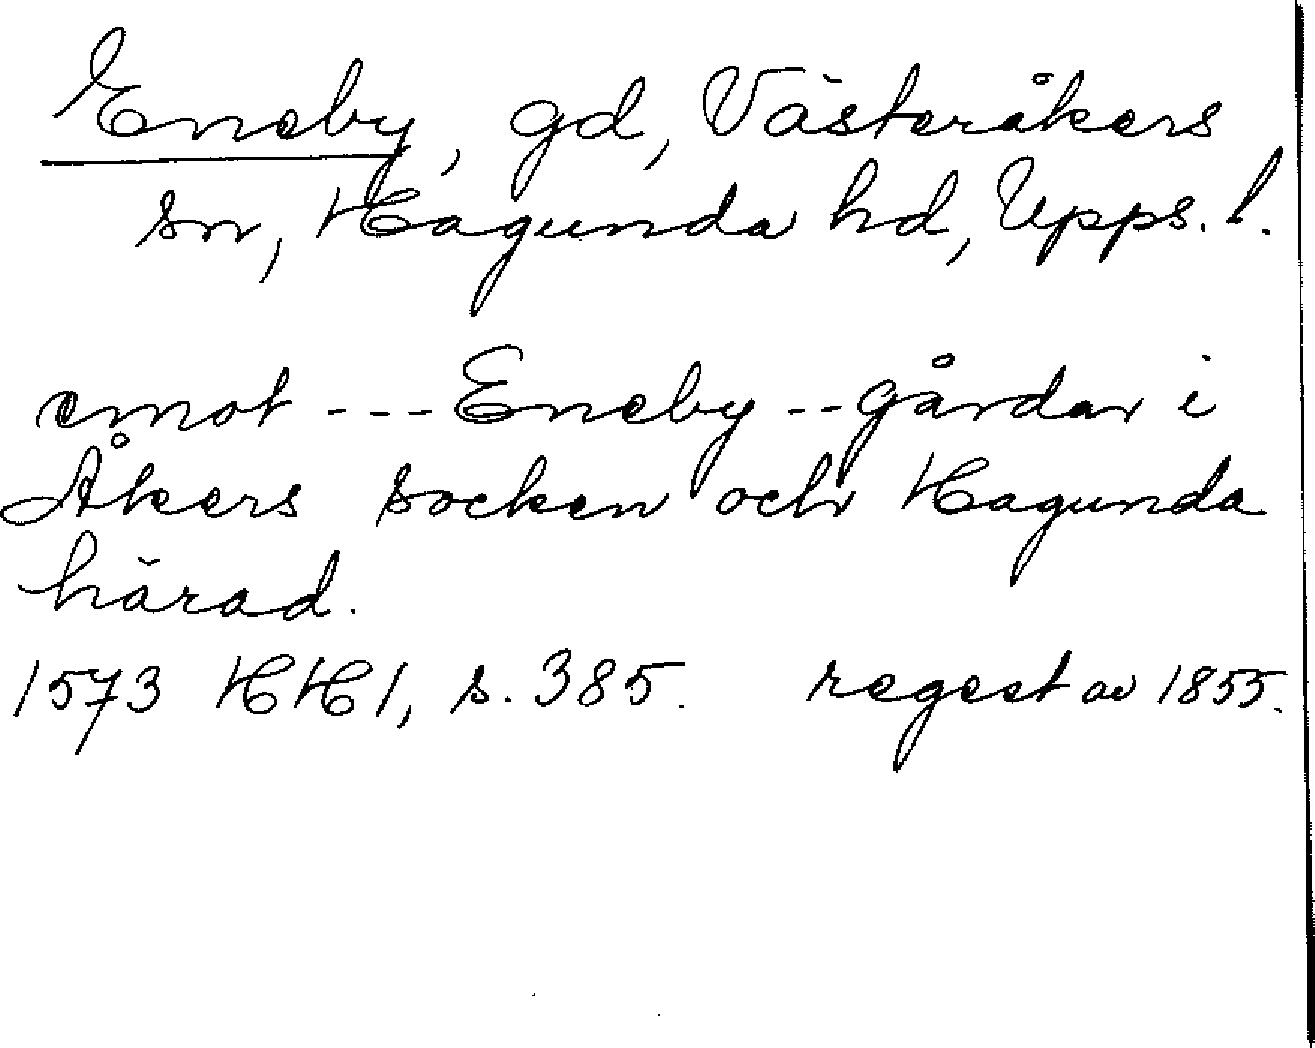 Eneby, gd, Västeråkers
sn, Hagunda hd, Upps. l.
emot --- Eneby -- gårdar i
Åkers socken och Hagunda
härad.
1573 HH1, s. 385. regest av 1855.